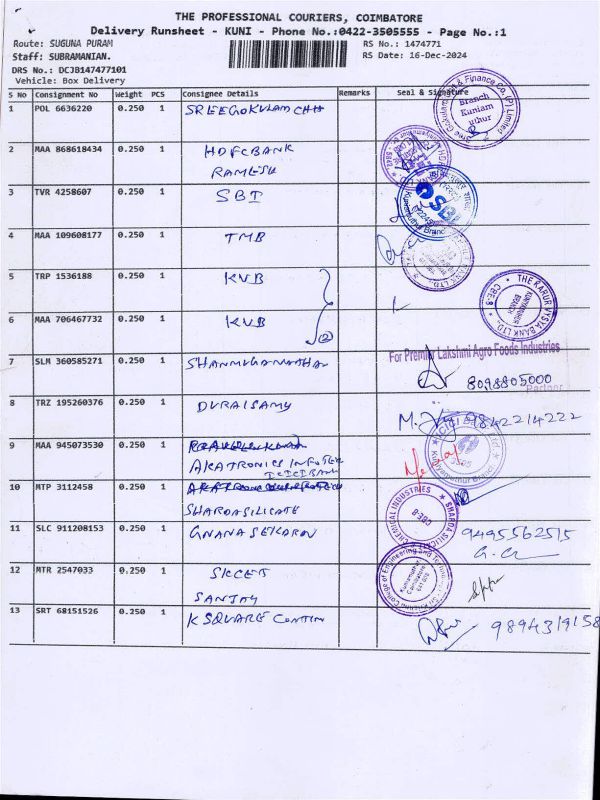 THE PROFESSIONAL COURIERS, COIMBATORE
Delivery Runsheet - KUNI - Phone No.:0422-3505555 - Page No.:1
Route: SUGUNA PURAM
RS No.: 1474771
Staff: SUBRAMANIAN.
RS Date: 16-Dec-2024
DRS No.: DCJB147477101
Vehicle: Box Delivery
S No Consignment No Weight PCS Consignee Details Remarks Seal & Signature
1 POL 6636220 0.250 1 SREEGOKULAM CHH
Branch
Kuniam
uthur
2 MAA 868618434 0.250 1 HDFC BANK
RAMESH
3 TVR 4258607 0.250 1 SBI
SBI
4 MAA 109608177 0.250 1 TMB
5 TRP 1536188 0.250 1 KVB
THE KARUR VYSYA BANK LTD
CBE-8
6 MAA 706467732 0.250 1 KVB
2
7 SLM 360585271 0.250 1
For Premier Lakshmi Agro Foods Industries
8098805000
Partner
8 TRZ 195260376 0.250 1 DURAISAMY
9842214222
9 MAA 945073530 0.250 1
AKATRONICS INFOTEK
ICICI BANK
10 MTP 3112458 0.250 1
SHARDASILICATE
CHEMICAL INDUSTRIES
CBE-8
11 SLC 911208153 0.250 1 GNANASEKARAN
9495562515
12 MTR 2547033 0.250 1 SKCET
SANJAY
College of Engineering and
13 SRT 68151526 0.250 1 K SQUARE
9894319158